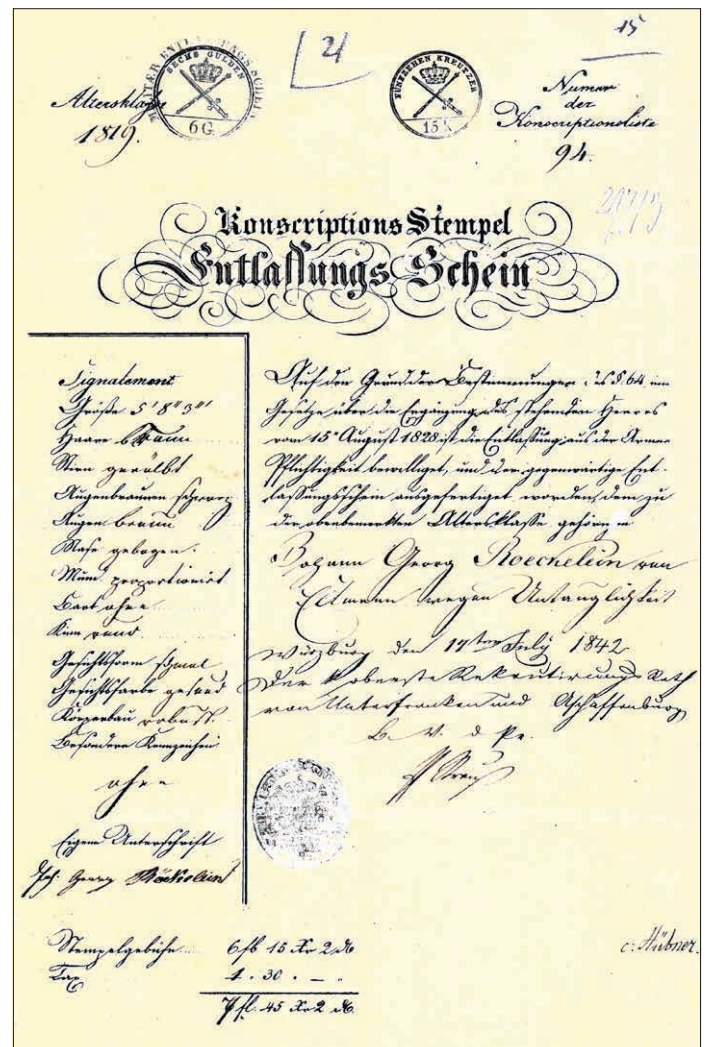 15
21
MILITÆR ENTLASSUNGS SCHEIN
SECHS GULDEN
6 G.
FÜNFZEHEN KREUTZER
15 k.
Altersklasse
1819.
Numer
der
Konscriptionsliste
94.
Konscriptions Stempel
Entlassungs Schein
Signalement
Größe 5' 8" 3'''
Haare braun
Stirn gewölbt
Augenbraunen schwarz
Augen braun
Nase gebogen.
Mund proportionirt
Bart ohne
Kinn rund
Gesichtsform schmal
Gesichtsfarbe gesund
Körperbau robust.
Besondere Kennzeichen
ohne
Eigene Unterschrift
Joh: Georg Röckelein
Auf den Grund der Bestimmungen des §. 64 im
Gesetze über die Ergänzung des stehenden Heeres
vom 15t August 1828 ist die Entlassung aus der Armee
Pflichtigkeit bewilliget, und der gegenwärtige Ent-
lassungsschein ausgefertiget worden, dem zu
der obenbemerkten Altersklasse gehörigen
Johann Georg Roeckelein von
Eltmann wegen Untauglichkeit
Würzburg den 17ten July 1842
Der k oberste Rekrutirungs Rath
von Unterfranken und Aschaffenburg
Stempelgebühr 6 fl 15 Xr 2
Tax 1. 30. - .
7 fl. 45 Xr 2
c: Hübner.